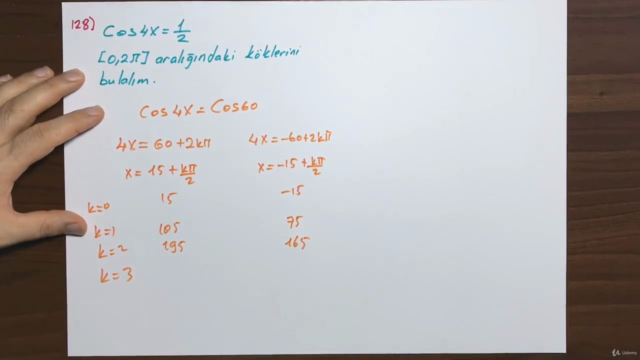 128) Cos4x = 1/2
[0,2π] aralığındaki köklerini
bulalım.
Cos4x = Cos60
4x = 60+2kπ 4x = -60+2kπ
x = 15 + kπ/2 x = -15 + kπ/2
k=0 15 -15
k=1 105 75
k=2 195 165
k=3
Udemy